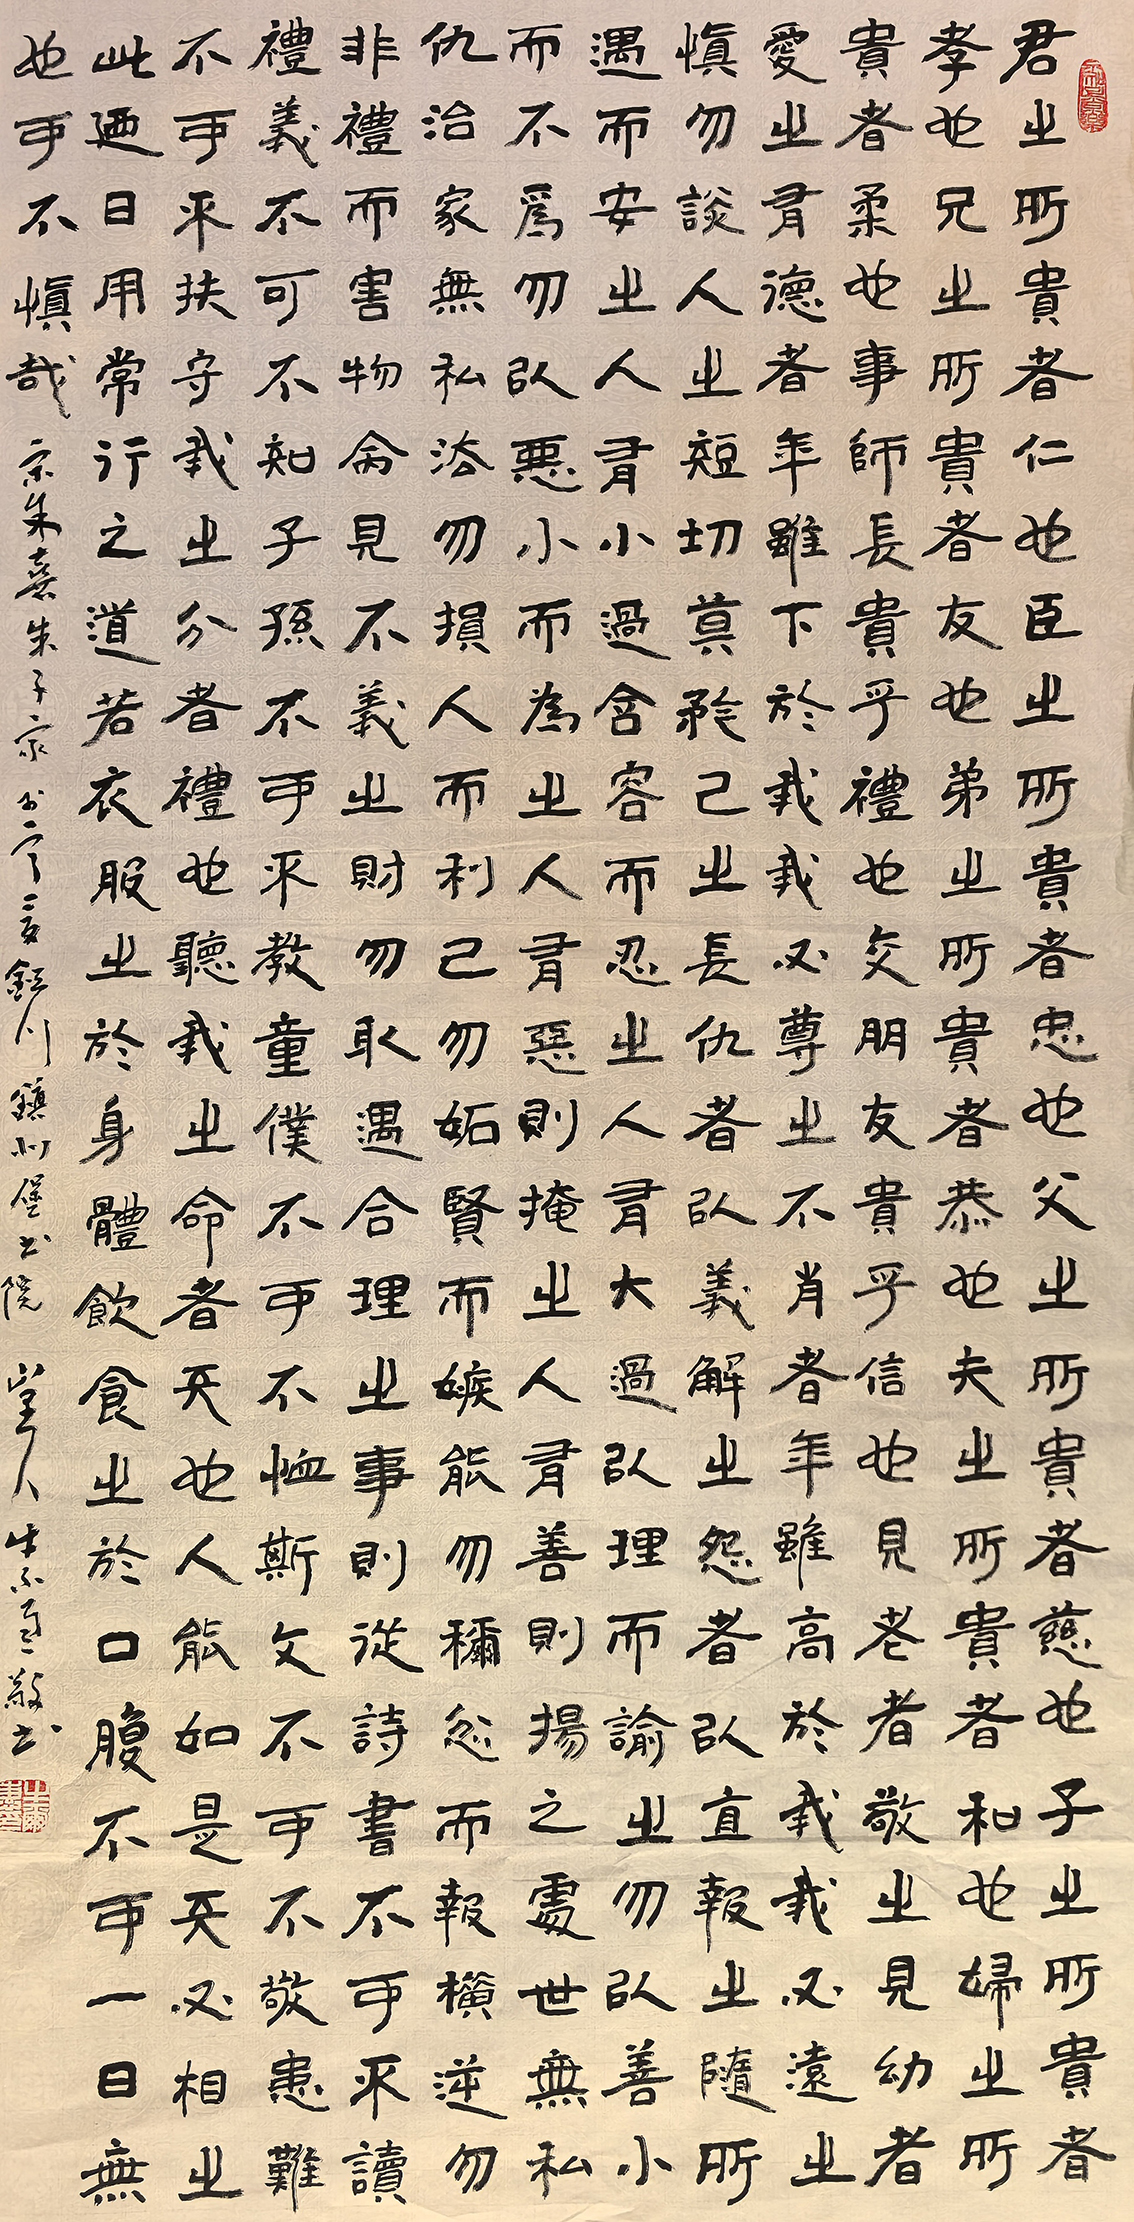 君之所貴者仁也臣之所貴者忠也父之所貴者慈也子之所貴者
孝也兄之所貴者友也弟之所貴者恭也夫之所貴者和也婦之所
貴者柔也事師長貴乎禮也交朋友貴乎信也見老者敬之見幼者
愛之有德者年雖下於我我必尊之不肖者年雖高於我我必遠之
慎勿談人之短切莫矜己之長仇者以義解之怨者以直報之隨所
遇而安之人有小過含容而忍之人有大過以理而諭之勿以善小
而不爲勿以悪小而為之人有惡則掩之人有善則揚之處世無私
仇治家無私法勿損人而利己勿妬賢而嫉能勿稱忿而報橫逆勿
非禮而害物命見不義之財勿取遇合理之事則從詩書不可不讀
禮義不可不知子孫不可不教童僕不可不恤斯文不可不敬患難
不可不扶守我之分者禮也聽我之命者天也人能如是天必相之
此迺日用常行之道若衣服之於身體飲食之於口腹不可一日無
也可不慎哉 宋朱熹朱子家 夏銀川鎮北堡書院 敬書